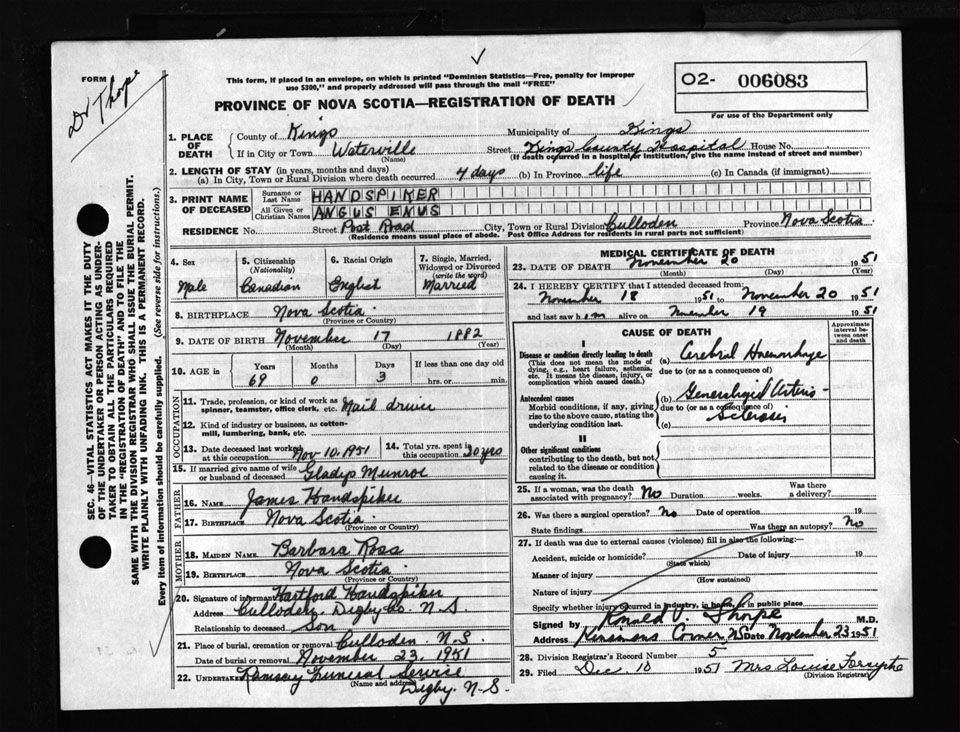 FORM
Dr Thorpe
This form, if placed in an envelope, on which is printed "Dominion Statistics—Free, penalty for improper
use $300," and properly addressed will pass through the mail "FREE"
O2- 006083
For use of the Department only
PROVINCE OF NOVA SCOTIA—REGISTRATION OF DEATH
1. PLACE OF DEATH
County of Kings Municipality of Kings
If in City or Town Waterville Street Kings County Hospital House No.
(Name) (If death occurred in a hospital or institution, give the name instead of street and number)
2. LENGTH OF STAY (in years, months and days)
(a) In City, Town or Rural Division where death occurred 4 days (b) In Province life (c) In Canada (if immigrant)
3. PRINT NAME OF DECEASED
Surname or Last Name HANDSPIKER
All Given or Christian Names ANGUS ENUS
RESIDENCE No. Street Post Road City, Town or Rural Division Culloden Province Nova Scotia
(Residence means usual place of abode. Post Office Address for residents in rural parts not sufficient)
4. Sex
Male
5. Citizenship
(Nationality)
Canadian
6. Racial Origin
English
7. Single, Married,
Widowed or Divorced
(write the word)
Married
8. BIRTHPLACE Nova Scotia
(Province or Country)
9. DATE OF BIRTH November 17 1882
(Month) (Day) (Year)
10. AGE in Years Months Days If less than one day old
69 0 3 hrs. or min.
OCCUPATION
11. Trade, profession, or kind of work as
spinner, teamster, office clerk, etc. Mail driver
12. Kind of industry or business, as cotton-
mill, lumbering, bank, etc.
13. Date deceased last worked
at this occupation Nov 10, 1951
14. Total yrs. spent in
this occupation 20 yrs
15. If married give name of wife
or husband of deceased Gladys Munroe
FATHER
16. NAME James Handspiker
17. BIRTHPLACE Nova Scotia
(Province or Country)
MOTHER
18. MAIDEN NAME Barbara Ross
19. BIRTHPLACE Nova Scotia
(Province or Country)
20. Signature of informant Hartford Handspiker
Address Culloden, Digby Co. N.S.
Relationship to deceased Son
21. Place of burial, cremation or removal Culloden N.S.
Date of burial or removal November 23, 1951
22. UNDERTAKER Ramsay Funeral Service
(Name and address)
Digby. N.S.
MEDICAL CERTIFICATE OF DEATH
23. DATE OF DEATH November 20 1951
(Month) (Day) (Year)
24. I HEREBY CERTIFY that I attended deceased from:
November 18 1951 to November 20 1951
and last saw him alive on November 19 1951
CAUSE OF DEATH
Approximate interval between onset and death
I
Disease or condition directly leading to death
(This does not mean the mode of
dying, e.g., heart failure, asthenia,
etc. It means the disease, injury, or
complication which caused death.)
(a) Cerebral Hemorrhage
due to (or as a consequence of)
Antecedent causes
Morbid conditions, if any, giving
rise to the above cause, stating the
underlying condition last.
(b) Generalized Arterio-
due to (or as a consequence of)
Sclerosis
(c)
II
Other significant conditions
contributing to the death, but not
related to the disease or condition
causing it.
25. If a woman, was the death
associated with pregnancy? No Duration weeks. Was there
a delivery?
26. Was there a surgical operation? No Date of operation 19
State findings Was there an autopsy? No
27. If death was due to external causes (violence) fill in also the following:—
Accident, suicide or homicide? Date of injury 19
(State which)
Manner of injury
(How sustained)
Nature of injury
Specify whether injury occurred in industry, in home, or in public place
Signed by Ronald V. Thorpe M.D.
Address Kinsmans Corner NS Date November 23 1951
28. Division Registrar's Record Number 5
29. Filed Dec. 10 1951 Mrs Louise Forsythe
(Division Registrar)
SEC. 46—VITAL STATISTICS ACT MAKES IT THE DUTY
OF THE UNDERTAKER OR PERSON ACTING AS UNDER-
TAKER TO OBTAIN ALL THE PARTICULARS REQUIRED
IN THE "REGISTRATION OF DEATH" AND TO FILE THE
SAME WITH THE DIVISION REGISTRAR WHO SHALL ISSUE THE BURIAL PERMIT.
WRITE PLAINLY WITH UNFADING INK. THIS IS A PERMANENT RECORD.
Every item of information should be carefully supplied. (See reverse side for instructions.)